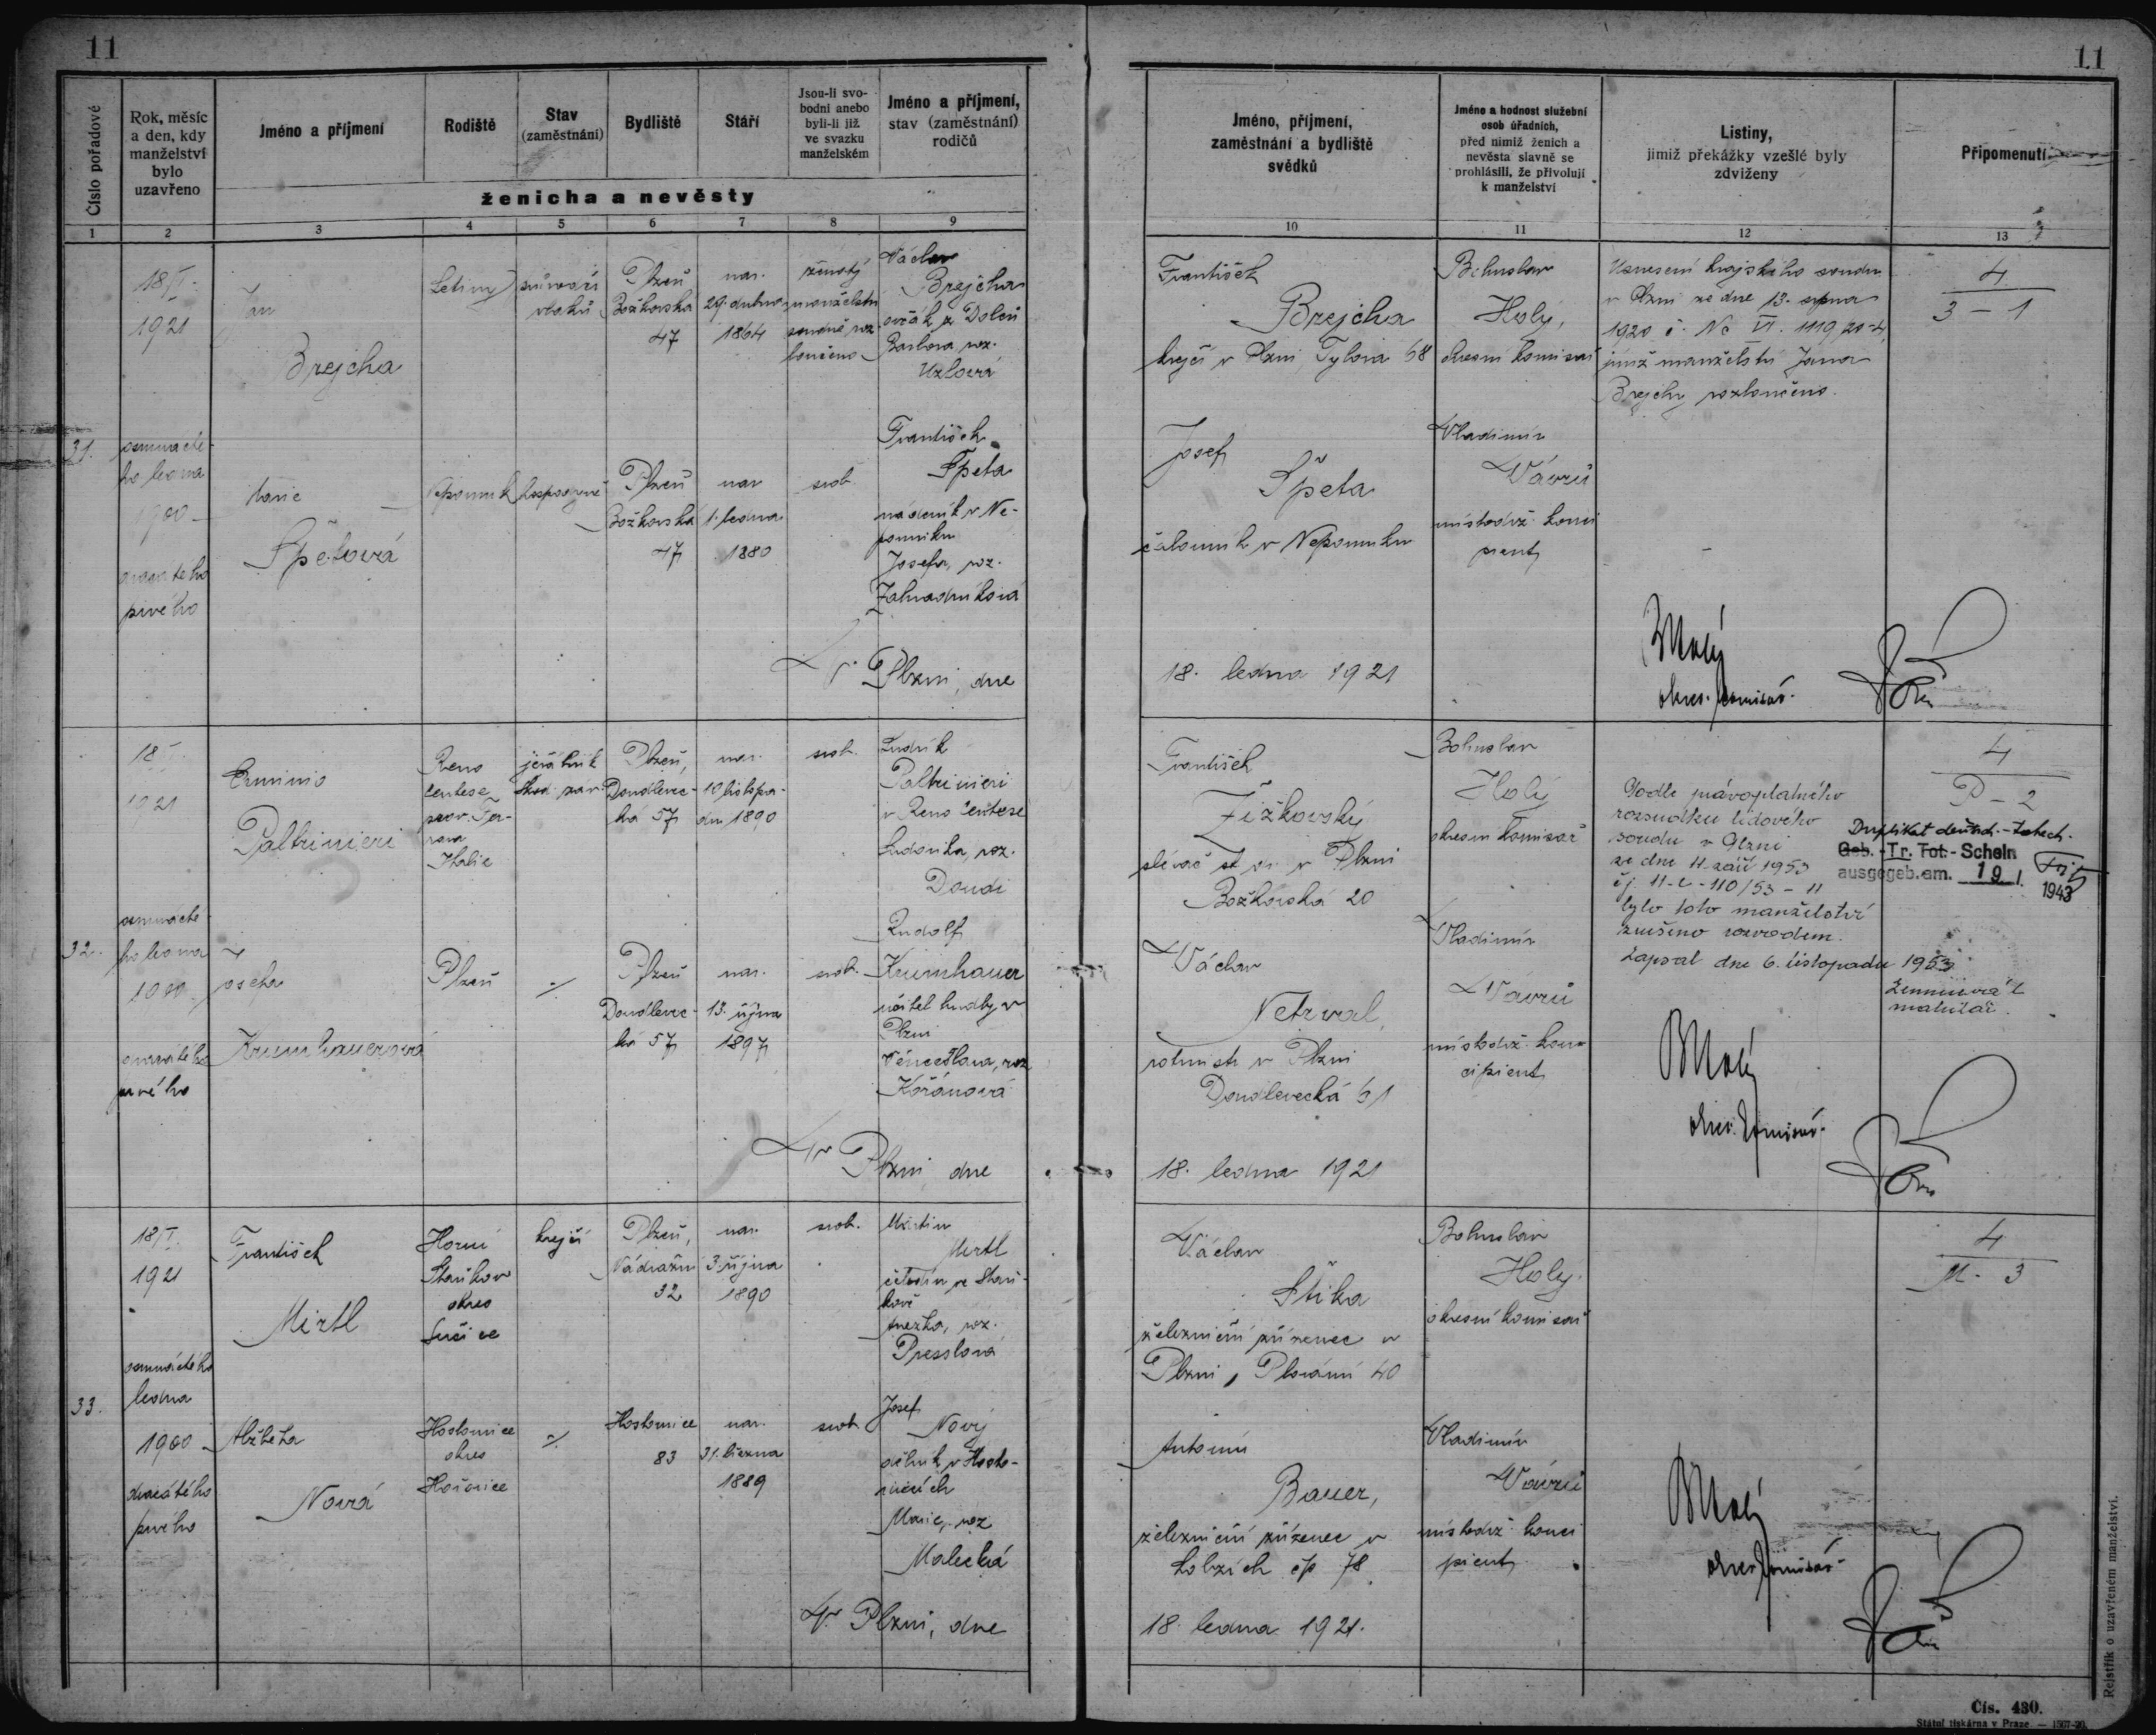 11
11
Číslo pořadové
Rok, měsíc a den, kdy manželství bylo uzavřeno
Jméno a příjmení
Rodiště
Stav (zaměstnání)
Bydliště
Stáří
Jsou-li svobodni anebo byli-li již ve svazku manželském
Jméno a příjmení, stav (zaměstnání) rodičů
ženicha a nevěsty
Jméno, příjmení, zaměstnání a bydliště svědků
Jméno a hodnost služební osob úřadních, před nimiž ženich a nevěsta slavně se prohlásili, že přivolují k manželství
Listiny, jimiž překážky vzešlé byly zdviženy
Připomenutí
1 2 3 4 5 6 7 8 9 10 11 12 13
31.
18/I.
1921
osmnácté-
ho ledna
1900
dvacátého
prvého
Jan
Brejcha
Letiny
průvodčí
vlaků
Plzeň
Božkovská
47
nar.
29. dubna
1864
ženatý
manželství
soudně roz-
loučeno
Václav
Brejcha
ovčák z Dolců
Barbora roz.
Marie
Špetová
Nepomuk
Plzeň
Božkovská
47
nar
1. ledna
1880
svob.
František
Špeta
nádeník v Ne-
pomuku
Josefa, roz.
Zahradníková
V Plzni, dne
František
Brejcha
krejčí v Plzni, Tylova 68
Josef
Špeta
čalouník v Nepomuku
18. ledna 1921
Bohuslav
Holý,
okresní komisař
Vladimír
Vávrů
místodrž. konci
pient
Usnesení krajského soudu
v Plzni ze dne 13. srpna
1920 č. Nc VI. 1119/20-4,
jímž manželství Jana
Brejchy rozloučeno.
BHolý
okres. komisař.
4
3 - 1
32.
18/I.
1921
osmnácté-
ho ledna
1900
dvacátého
prvého
Erminio
Paltrinieri
Reno
Centese
prov. Fer-
rara
Italie
jeřábník
Škod. záv.
Plzeň,
Doudlevec-
ká 57
nar.
10 listopa-
du 1890
svob.
Ludvík
Paltrinieri
v Reno Centese
Ludovika, roz.
Dondi
Josefa
Krumhauerová
Plzeň
Plzeň
Doudlevec-
ká 57
nar.
13. října
1897
svob.
Rudolf
Krumhauer
učitel hudby v
Plzni
Věnceslava, roz
Kořánová
V Plzni dne
František
Žižkovský
slévač st. dr. v Plzni
Božkovská 20
Václav
Netrval,
rotmistr v Plzni
Doudlevecká 61
18. ledna 1921
Bohuslav
Holý
okresní komisař
Vladimír
Vávrů
místodrž. kon-
cipient
Podle právoplatného
rozsudku lidového
soudu v Plzni
ze dne 11. září 1953
čj. 11-C-110/53-11
bylo toto manželství
zrušeno rozvodem.
Zapsal dne 6. listopadu 1953
matrikář.
BHolý
okres. komisař.
4
P - 2
Geb.-Tr. Tot.-Schein
ausgegeb. am. 19 1. 1943
33.
18/I.
1921
osmnáctého
ledna
1900
dvacátého
prvého
František
Mirtl
Horní
Staňkov
okres
Sušice
krejčí
Plzeň,
Nádražní
32
nar.
3. října
1890
svob.
Martin
Mirtl
čeledín ve Staň-
kově
Anežka, roz.
Presslová
Alžběta
Nová
Hostomice
okres
Hořovice
Hostomice
83
nar.
31. března
1889
svob.
Josef
Nový
dělník v Hosto-
micích
Marie, roz
Malecká
V Plzni, dne
Václav
Štika
železniční zřízenec v
Plzni, Plovární 40
Antonín
Bauer,
železniční zřízenec v
Lobzích čp 78
18. ledna 1921.
Bohuslav
Holý
okresní komisař
Vladimír
Vávrů
místodrž. konci
pient
BHolý
okres. komisař.
4
M - 3
Rejstřík o uzavřeném manželství.
Čís. 430.
Státní tiskárna v Praze. — 1507-20.